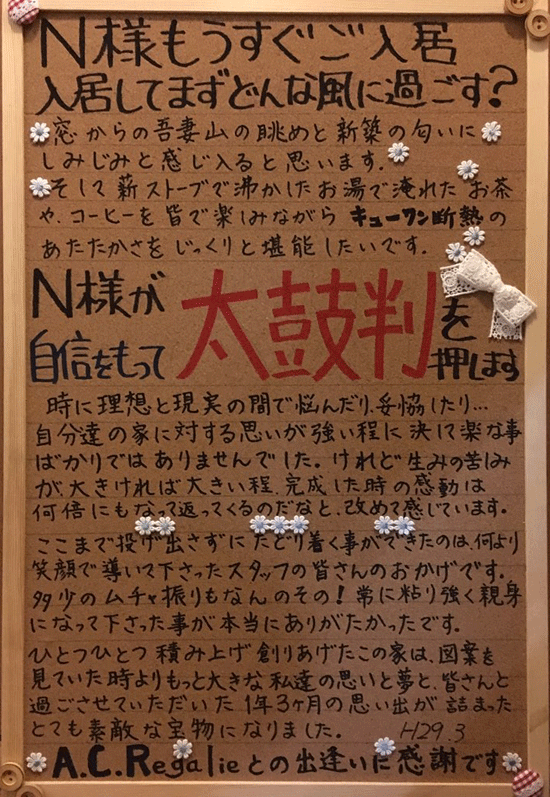 N様もうすぐご入居
入居してまずどんな風に過ごす?
窓からの吾妻山の眺めと新築の匂いに
しみじみと感じ入ると思います.
そして薪ストーブで沸かしたお湯で淹れたお茶
や、コーヒーを皆で楽しみながらキューワン断熱の
あたたかさをじっくりと堪能したいです.
N様が
自信をもって太鼓判を押します
時に理想と現実の間で悩んだり、妥協したり…
自分達の家に対する思いが強い程に決して楽な事
ばかりではありませんでした。けれど生みの苦しみ
が、大きければ大きい程、完成した時の感動は
何倍にもなって返ってくるのだなと、改めて感じています.
ここまで投げ出さずにたどり着く事ができたのは、何より
笑顔で導いて下さったスタッフの皆さんのおかげです.
多少のムチャ振りもなんのその!常に粘り強く親身
になって下さった事が本当にありがたかったです.
ひとつひとつ積み上げ創りあげたこの家は、図案を
見ていた時よりもっと大きな私達の思いと夢と、皆さんと
過ごさせていただいた1年3ヶ月の思い出が詰まった
とても素敵な宝物になりました. H29.3
A.C.Regalieとの出逢いに感謝です